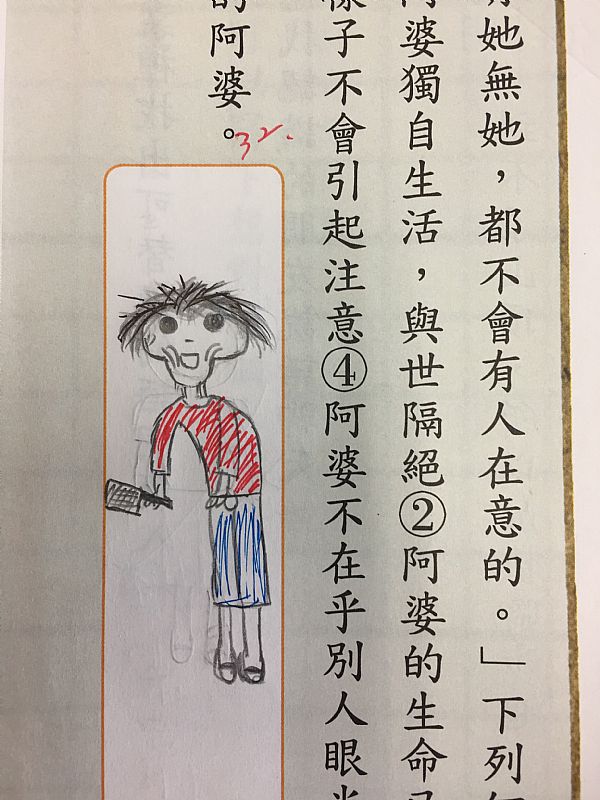 她無她，都不會有人在意的。」下列
婆獨自生活，與世隔絕②阿婆的生命
樣子不會引起注意④阿婆不在乎別人眼
的阿婆。
32.